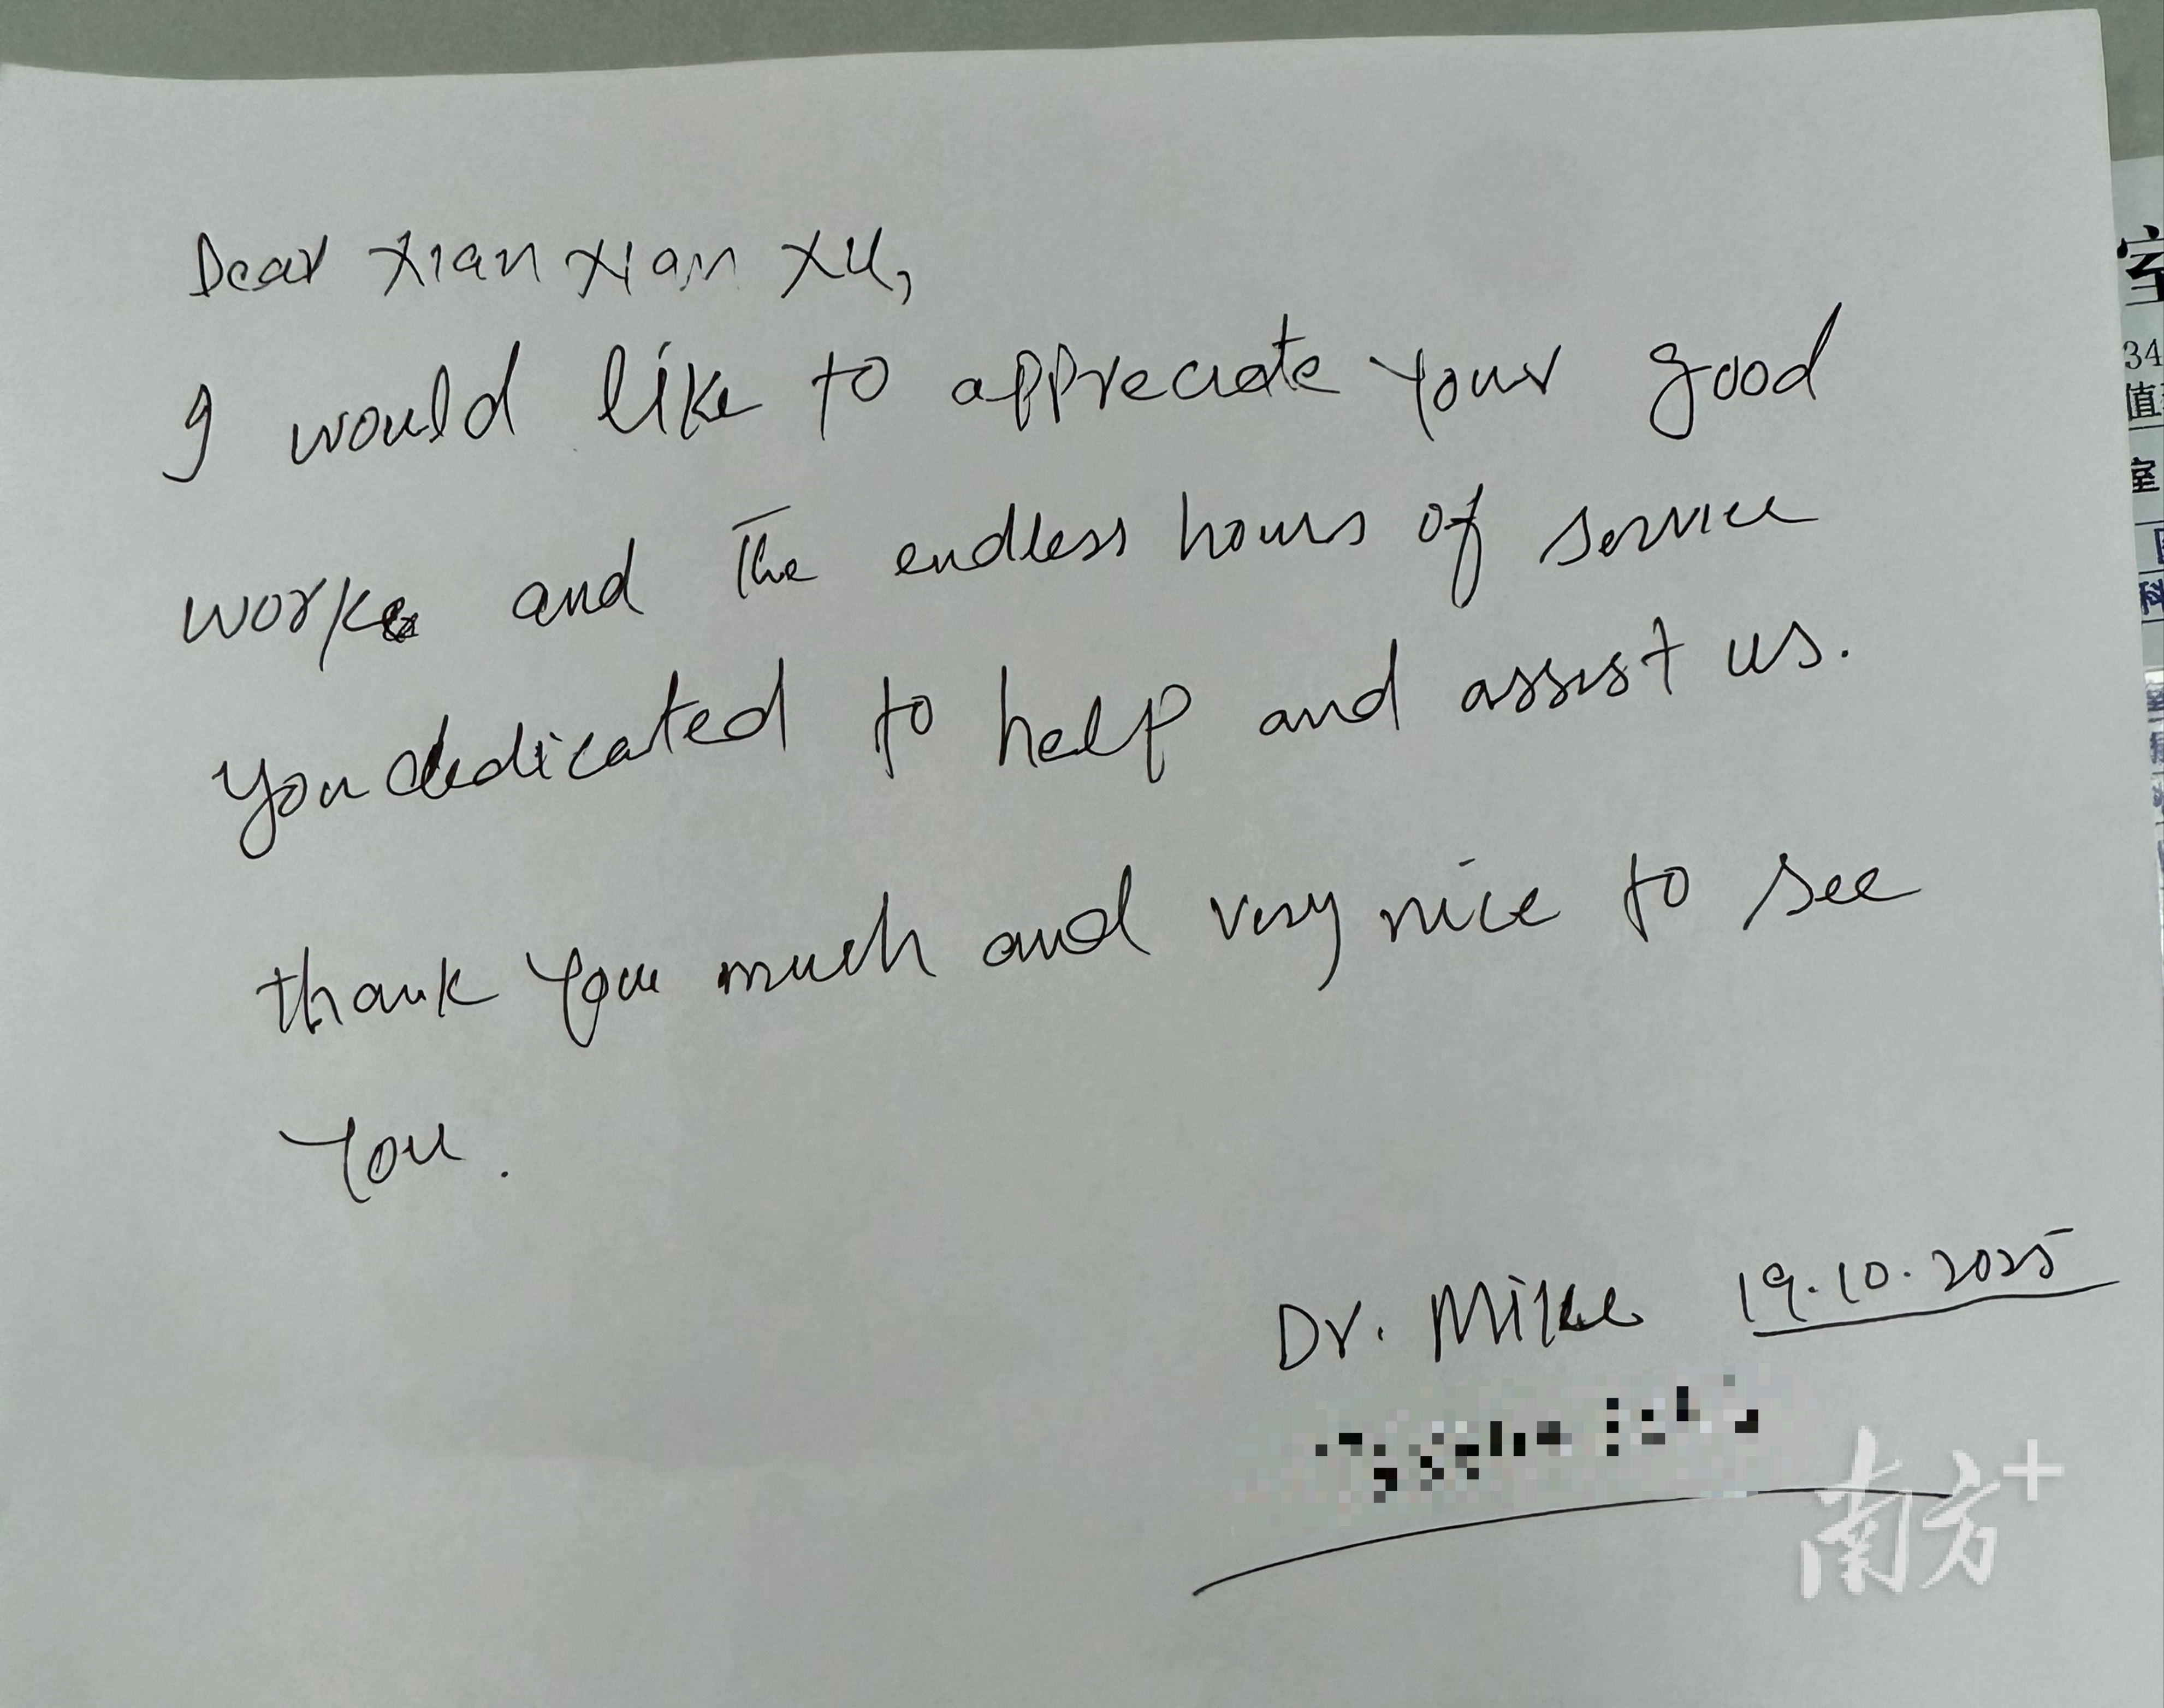 Dear Xian Xian Xu,
I would like to appreciate your good
work and The endless hours of service
you dedicated to help and assist us.
thank you much and very nice to see
You.
Dr. Mike 19.10.2025
南方+
室
34
值
室
科